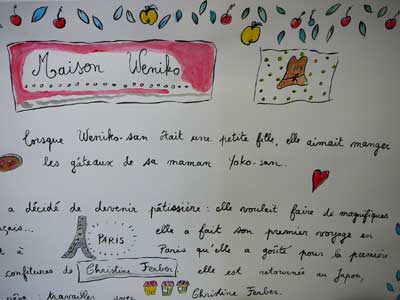 Maison Weniko
Lorsque Weniko-san était une petite fille, elle aimait manger
les gâteaux de sa maman Yoko-san..
a décidé de devenir pâtissière : elle voulait faire de magnifiques
çais... PARIS elle a fait son premier voyage en
t à Paris qu'elle a goûté pour la première
confitures de Christine Ferber, elle est retournée au Japon,
rêve travailler avec Christine Ferber.